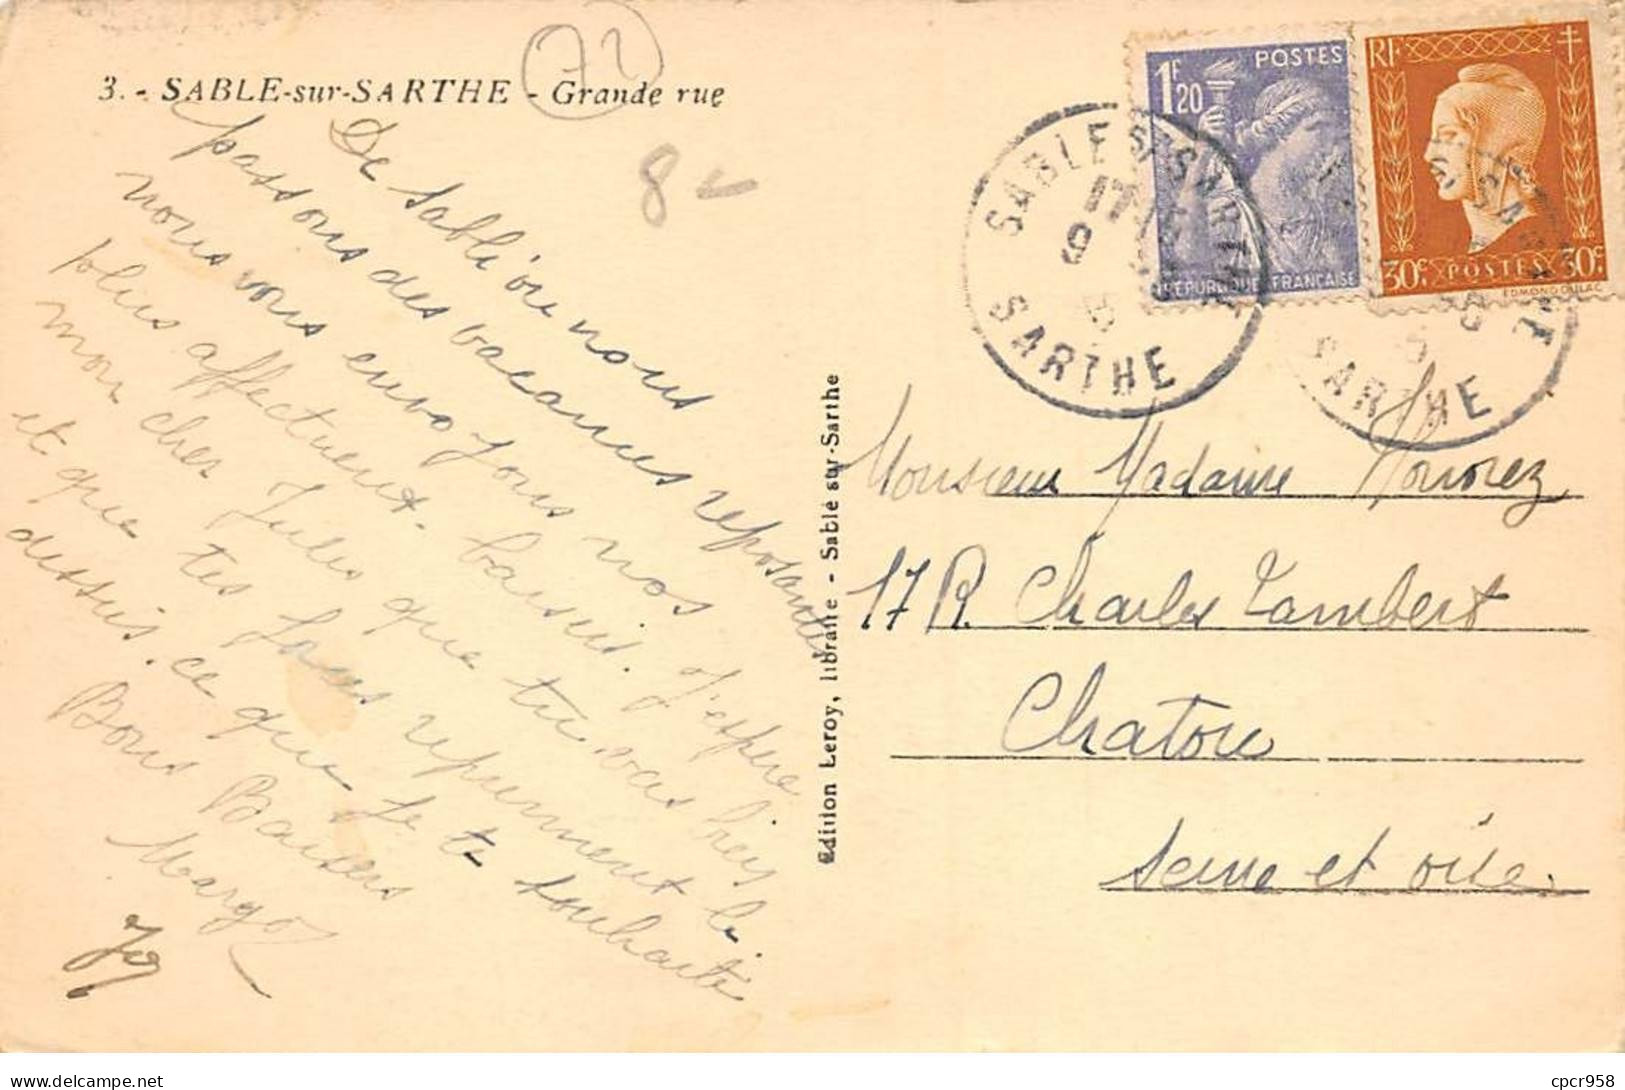 3. - SABLE-sur-SARTHE - Grande rue
72
8
De Sablé où nous
passons des vacances reposantes
nous vous envoyons nos
plus affectueux baisers. J'espère
mon cher Jules que tu vas bien
et que tes forces reprennent le
dessus. ce que je te souhaite
Bons Baisers
Margot
Edition Leroy, libraire - Sable sur-Sarthe
POSTES
1F20
REPUBLIQUE FRANÇAISE
RF
30c POSTES 30c
EDMOND DULAC
SABLE S/ SARTHE
17
9
SARTHE
SARTHE
Monsieur Madame
17 R. Charles Lambert
Chatou
Seine et oise.
cpcr958